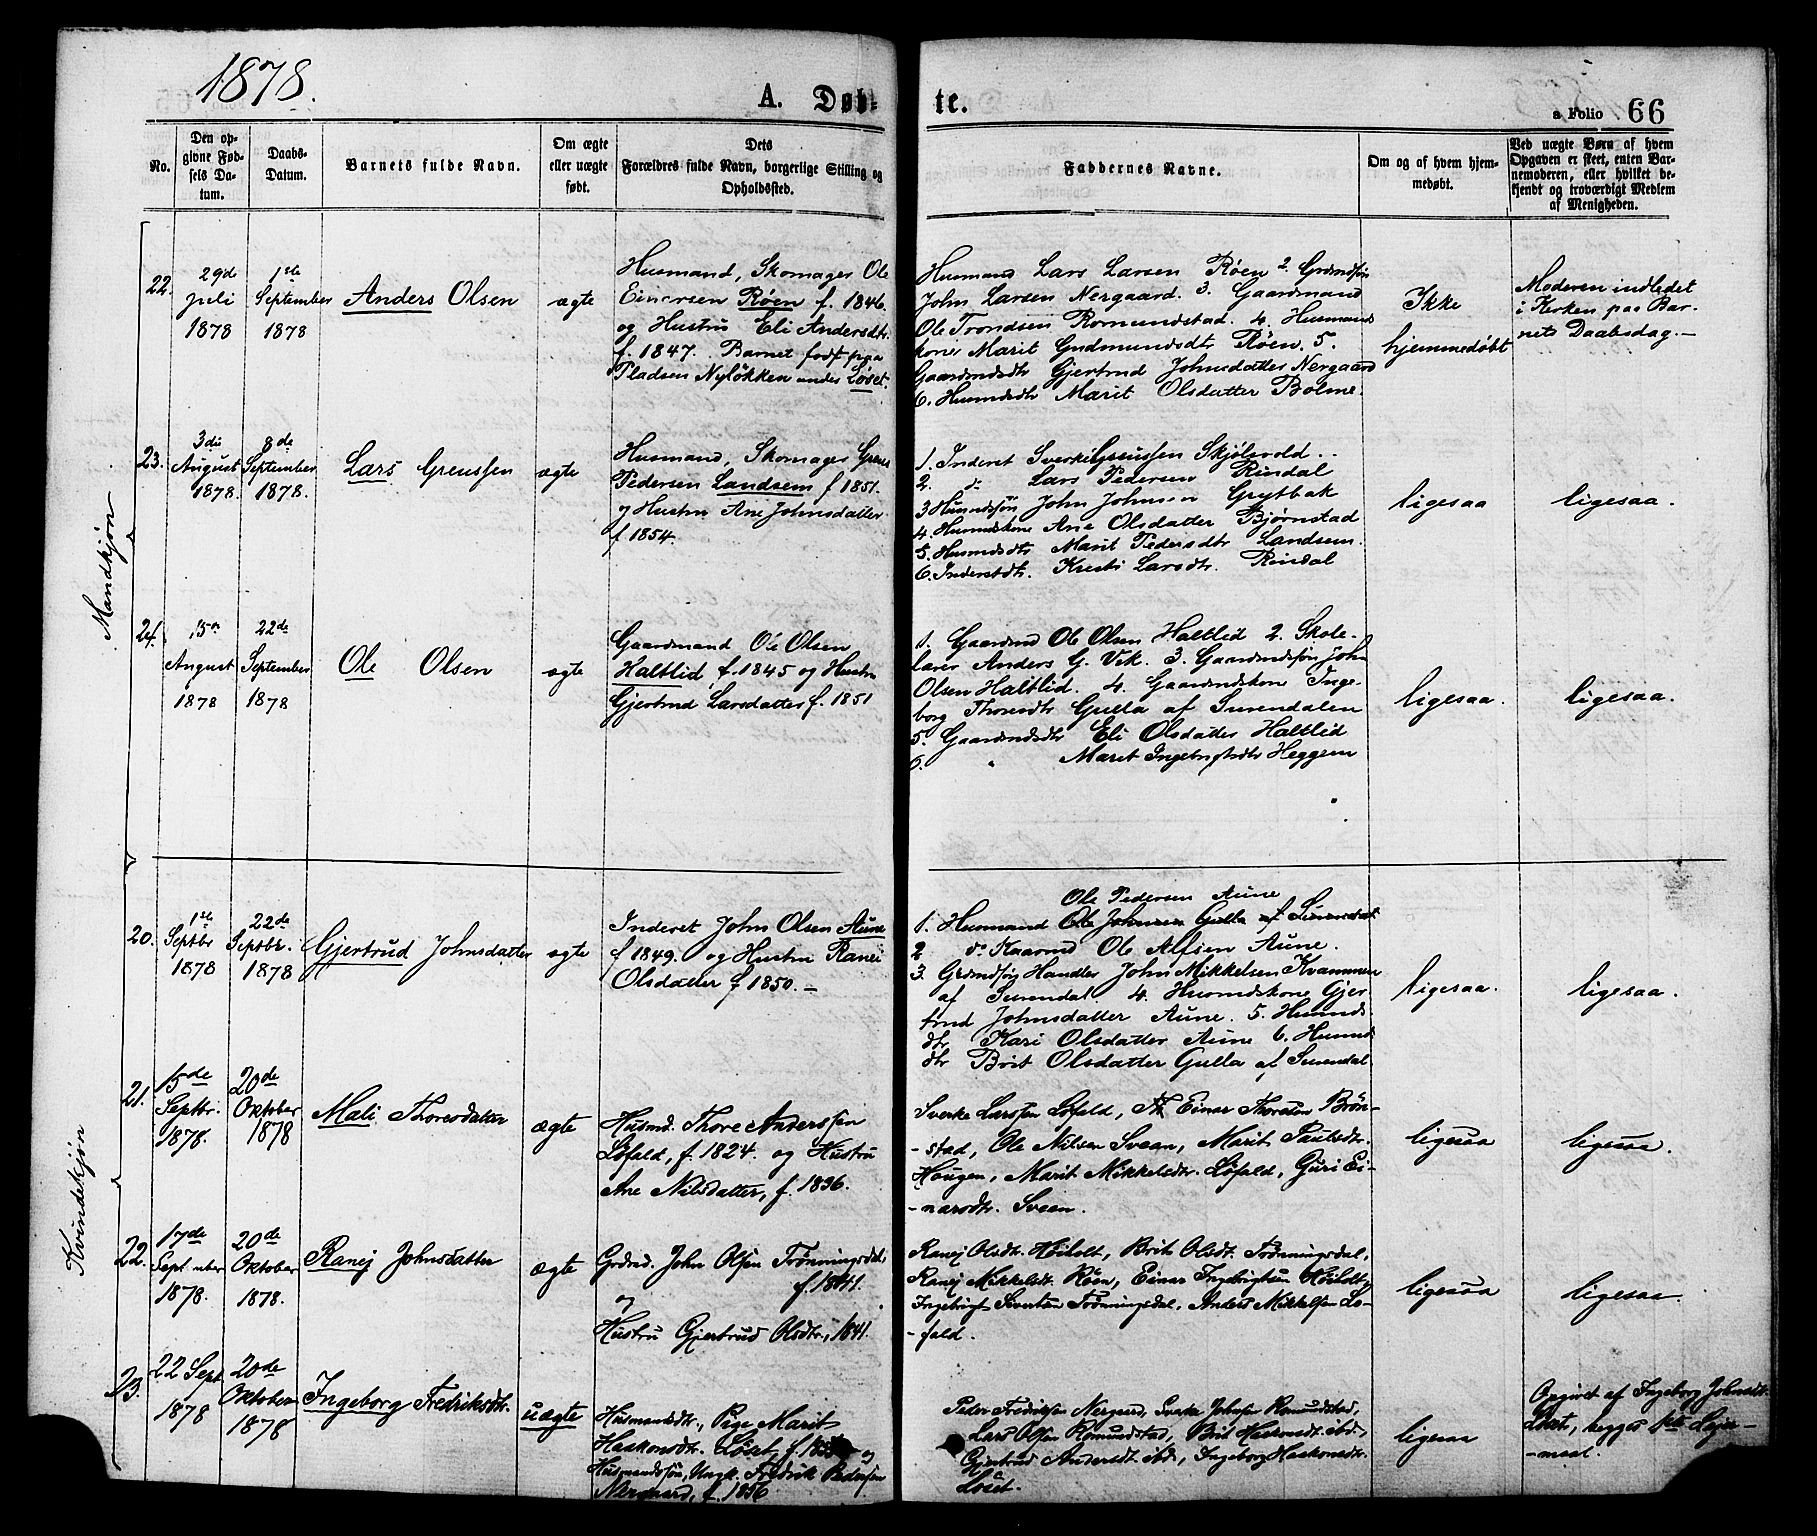 1878.
A. Døb-
te.
a Folio 66
No.
Den op-
givne Fød-
sels Da-
tum.
Daabs-
Datum.
Barnets fulde Navn.
Om ægte
eller uægte
født.
Dets
Forældres fulde Navn, borgerlige Stilling og
Opholdssted.
Faddernes Navne.
Om og af hvem hjem-
medøbt.
Ved uægte Børn af hvem
Opgaven er skeet, enten Bar-
nemoderen, eller hvilket be-
kjendt og troværdigt Medlem
af Menigheden.
Mandkjøn
22.
29de
juli
1878
1ste
September
1878
Anders Olsen
ægte
Husmand, Skomager Ole
Einersen Røen f. 1846.
og Hustru Eli Andersdtr.
f. 1847. Barnet født paa
Pladsen Nyløkken under Løset.
Husmand Lars Larsen Røen 2. Grdmdsøn
John Larsen Nergaard. 3. Gaardmand
Ole Trondsen Romundstad. 4. Husmands
kone Marit Gudmundsdtr Røen. 5.
Gaardmdsdtr Gjertrud Johnsdatter Nergaard
6. Husmdsdtr Marit Olsdatter Bolme.
Ikke
hjemmedøbt
Moderen indledet
i Kirken paa Bar-
nets Daabsdag.—
23.
3die
August
1878.
8de
September
1878.
Lars Greussen
ægte
Husmand, Skomager Greus
Pedersen Landsem f 1851.
og Hustru Ane Johnsdatter
f. 1854.
1. Inderst Sverke Greussen Skjølsvold..
2. do Lars Pedersen Rindal
3 Husmdsøn John Johnsen Grytbak
4. Husmdskone Ane Olsdatter Bjørnstad
5. Husmdsdtr Marit Pedersdtr Landsem.
6. Inderstdtr. Kristi Larsdtr. Rindal
ligesaa
ligesaa.
24.
15de
August
1878
22de
September
1878
Ole Olsen
ægte
Gaardmand Ole Olsen
Haltlid, f. 1845 og Hustru
Gjertrud Larsdatter f. 1851
1. Gaardmd Ole Olsen Haltlid 2. Skole-
lærer Anders G. Vik. 3. Gaardmdsøn John
Olsen Haltlid. 4. Gaardmdskone Inge-
borg Thoresdtr Gulla af Surendalen
5. Gaardmdsdtr Eli Olsdatter Haltlid
6. " Marit Ingebrigtsdtr Heggem
ligesaa.
ligesaa.
Kvindekjøn
20.
1ste
Septbr
1878
22de
Septbr.
1878
Gjertrud Johnsdatter
ægte
Inderst John Olsen Aune
f 1849. og Hustru Ranei
Olsdatter f 1850.—
Ole Pedersen Aune
1. Husmand Ole Johnsen Gulla af Surendal
2 do Kaarmd Ole Alfsen Aune.
3. Grdmdsøn Handler John Mikkelsen Kvammen
af Surendal 4. Husmdskone Gjer
trud Johnsdatter Aune. 5. Husmds.
dtr Kari Olsdatter Aune 6. Husmds
dtr Brit Olsdatter Gulla af Surendal
ligesaa.
ligesaa.
21.
15de
Septbr.
1878.
20de
Oktober
1878
Mali Thoresdatter
ægte
Husmd. Thore Anderssen
Løfald, f. 1824. og Hustru
Ane Nilsdatter, f. 1836.
Sverke Larssen Løfald, Einar Thoresen Brøn-
-stad, Ole Nilsen Sveen, Marit Paulsdtr.
Hougen, Marit Mikkelsdtr. Løfald, Guri Ei-
-narsdtr. Sveen.
ligesaa
ligesaa.
22.
17de
September
1878.
20de
Oktober
1878.
Ranej Johnsdatter
ægte
Grdmd. John Olsen Trønningsdal
f. 1841.
og
Hustru Gjertrud Olsdtr, 1841.
Ranej Olsdt. Høiholt, Brit Olsdt. Trønningsdal,
Ranej Mikkelsdt. Røen, Einar Ingebrigtsen Høiholt,
Ingebrigt Sivertsen Trønningsdal, Anders Mikkelsen Lø-
-fald.
ligesaa
ligesaa.
23.
22 Sept
1878
20de
Oktober
1878
Ingeborg Fredriksdtr.
uægte
Husmandsdtr., Pige Marit
Haakonsdtr. Løset, f. og
Husmandssøn, Ungk. Fredrik Pedersen
Nergaard, f. 1856
Peder Fredriksen Nergaard, Sverke Johnsen Romundstad,
Lars Olsen Romundstad, Brit Haakonsdt. ibd.,
Gjertrud Andersdt. ibd., Ingeborg Haakonsdtr.
Løset.
ligesaa
Opgivet af Ingeborg Johnsdtr.
Løset, begges 1ste Leier-
-maal.